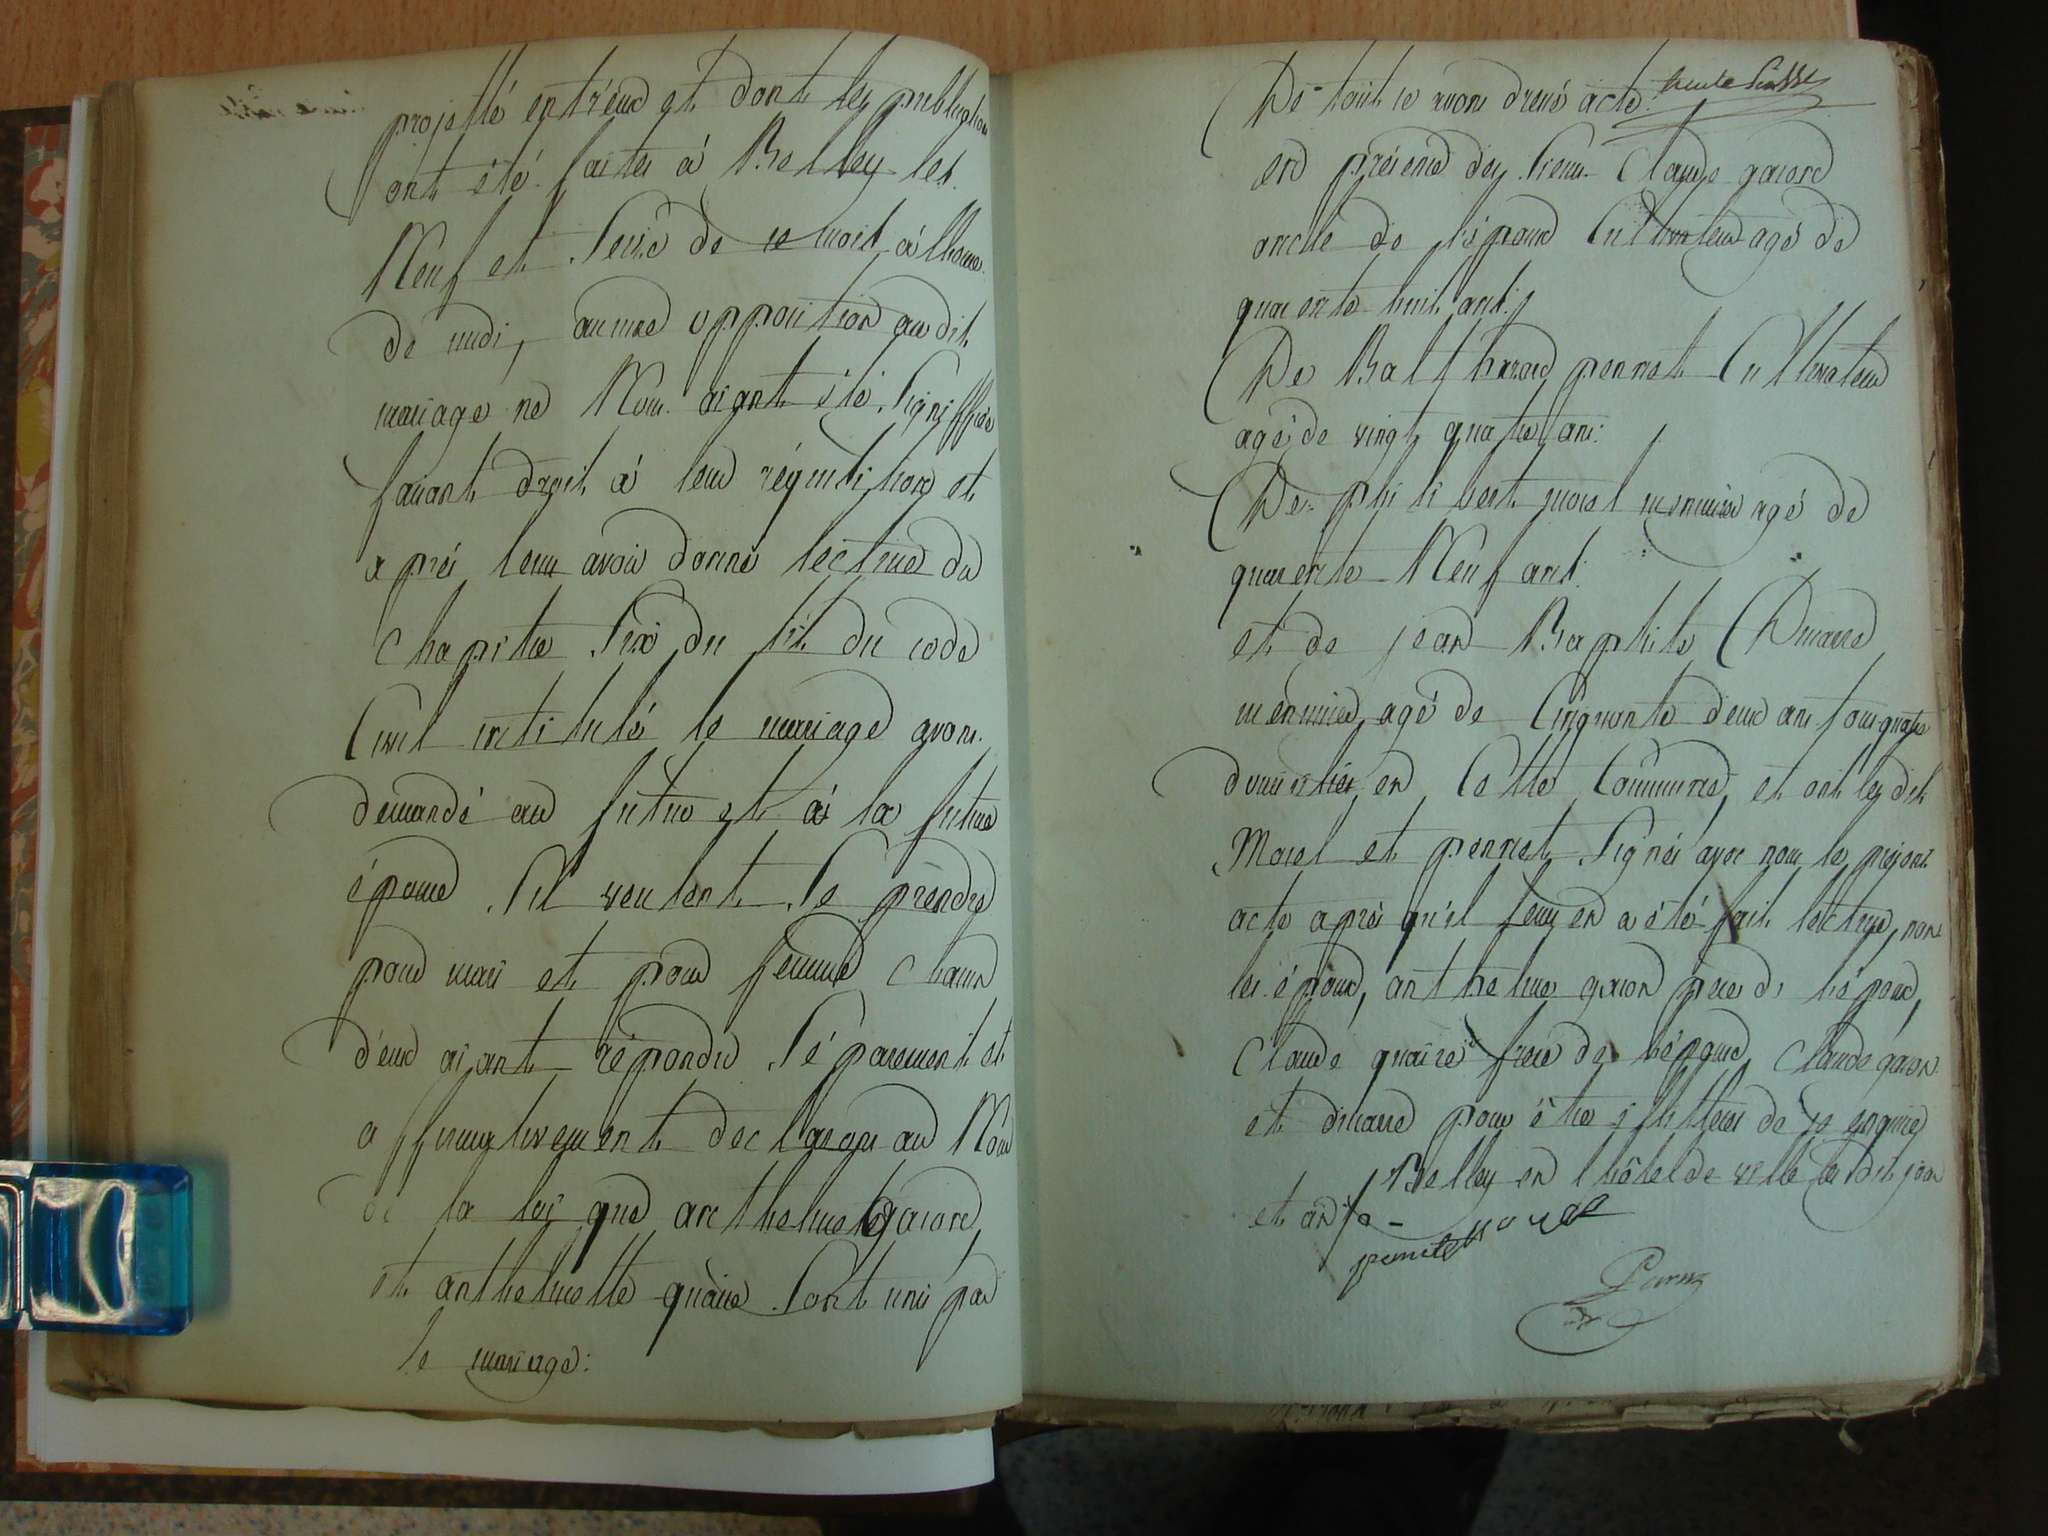 projetté entr'eux et dont les publication
ont été faites à Belley les
Neuf et Seize de ce mois à lheure
de midi, aucune opposition audit
mariage ne Nous aiant été Signiffiée
faisant droit à leur réquisition et
aprés leur avoir donné lecture du
chapitre Six du tit. du code
Civil intitulé le mariage avons
demandé au futur et à la future
épouse S'il veulent Se prendre
pour mari et pour femme chacun
d'eux aiant répondu Séparement et
affirmativement declarons au Nom
de la loi que anthelme gaion
et anthelmette quaire Sont unis par
le mariage:
De tout ce avons dressé acte.
en présence des Sieurs Claude gaion
oncle de l'époux Cultivateur agé de
quarente huit ans;
De Balthazard pennet Cultivateur
agé de vingt quatre ans:
De philibert morel menuisier agé de
quarente Neuf ans:
et de jean Baptiste
menuisier agé de Cinquante deux ans tous quatre
domiciliés en Cette Commune, et ont les dit
Morel et pennet Signés avec nous le présent
acte aprés qu'il leur en a été fait lecture, non
les époux, anthelme gaion pere de l'époux,
Claude quaire frere de l'épouse Claude gaion
et pour être illitteres de ce enquis
Belley en l'hôtel de ville le dit jour
et an